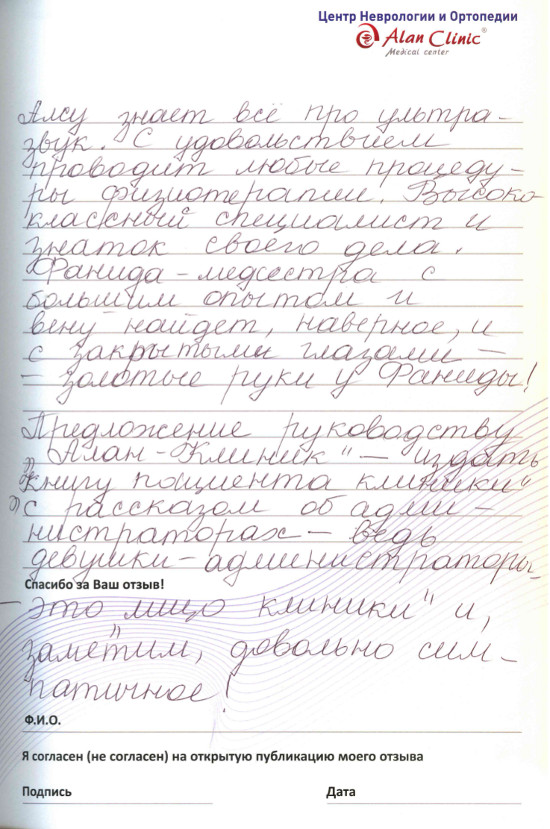 Центр Неврологии и Ортопедии
Alan Clinic®
Medical center
Алсу знает всё про ультра-
звук. С удовольствием
проводит любые процеду-
ры физиотерапии. Высоко-
классный специалист и
знаток своего дела.
Фанида - медсестра с
большим опытом и
вену найдет, наверное, и
с закрытыми глазами -
- золотые руки у Фаниды!
Предложение руководству
"Алан-Клиник" - издать
"книгу пациента клиники"
с рассказом об адми-
нистраторах - ведь
девушки - администраторы
Спасибо за Ваш отзыв!
- это лицо клиники" и,
заметим, довольно сим-
патичное!
Ф.И.О.
Я согласен (не согласен) на открытую публикацию моего отзыва
Подпись Дата